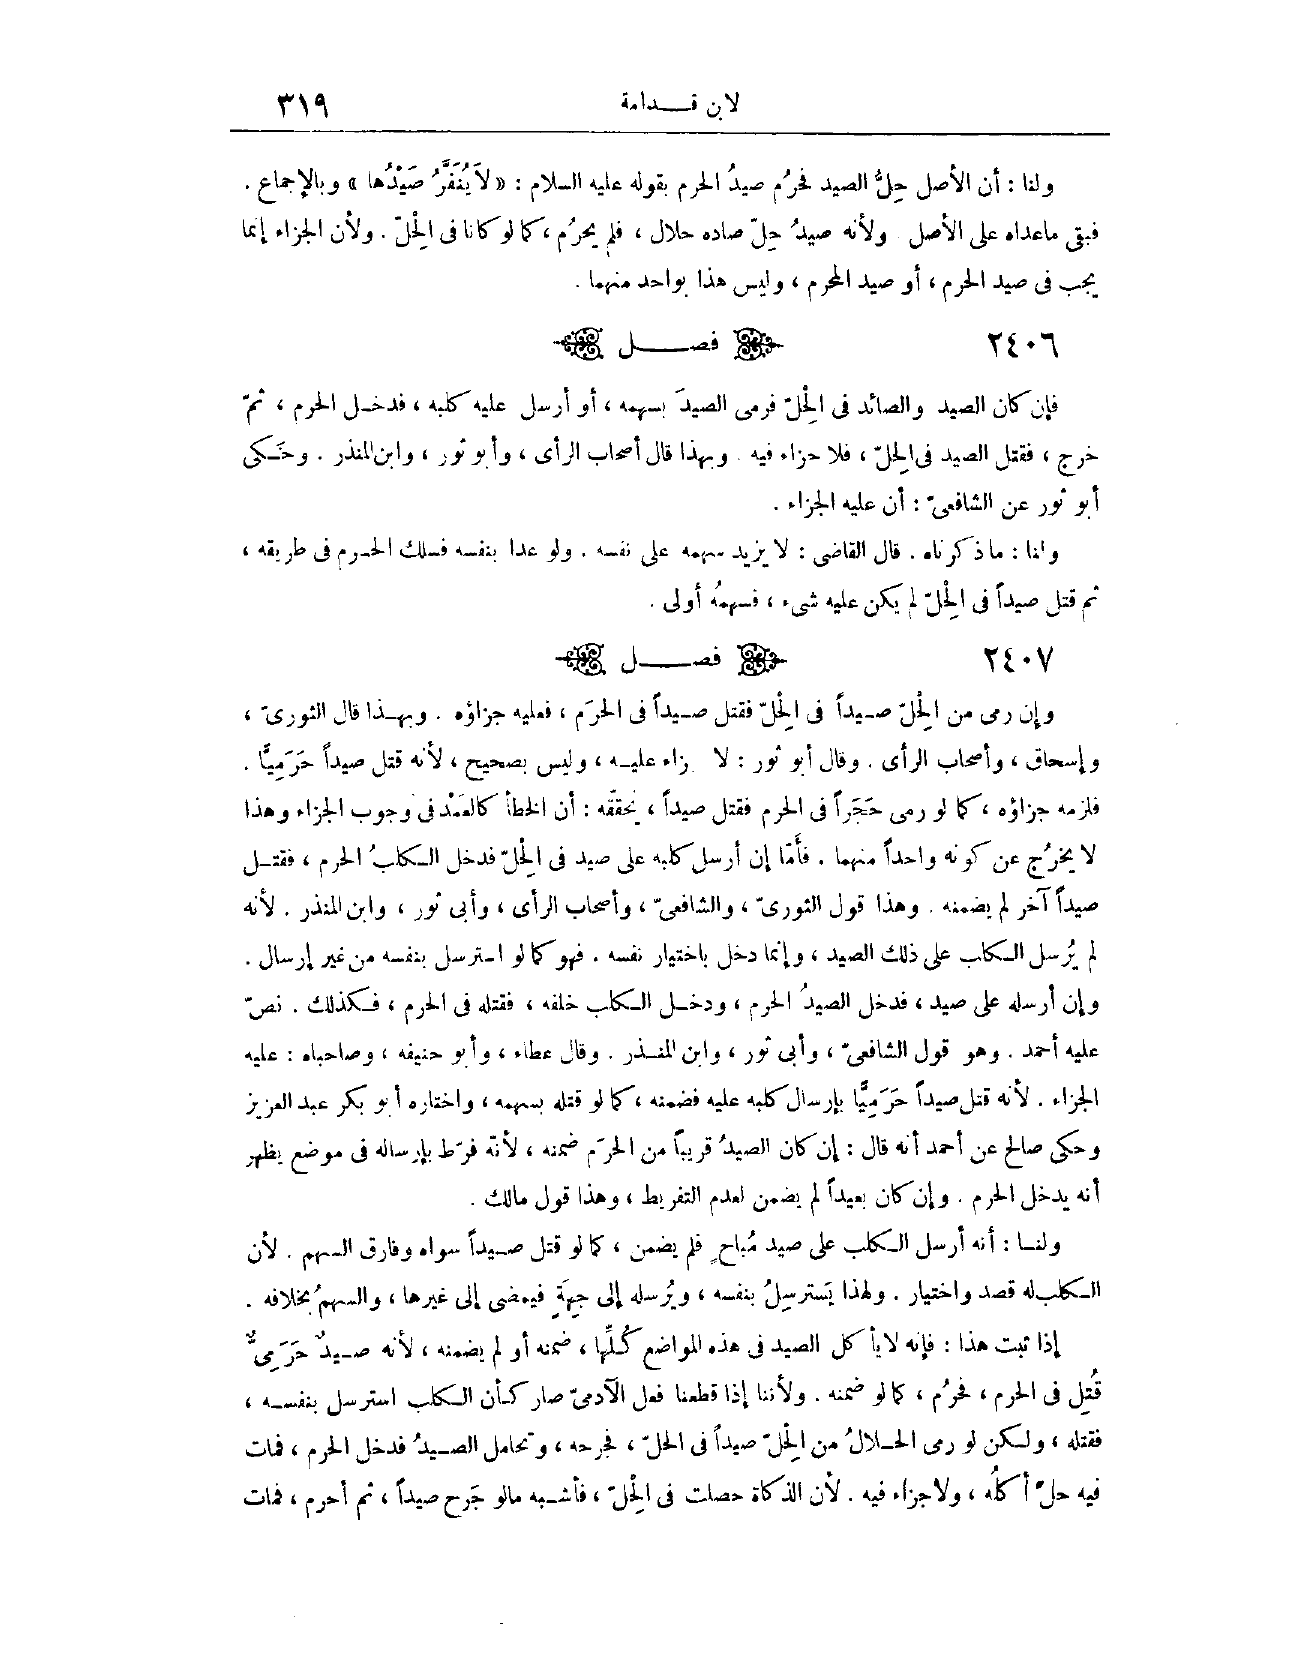 لابن قـدامة ٣١٩
ولنا : أن الأصل حِلُّ الصيد فحَرُم صيدُ الحرم بقوله عليه السلام : « لاَ يُنَفَّرُ صَيْدُها » وبالإجماع .
فبقى ماعداه على الأصل . ولأنه صيدُ حِلّ صاده حلال ، فلم يحرُم ، كما لو كانا فى الحِلّ . ولأن الجزاء إنما
يجب فى صيد الحرم ، أو صيد المحرم ، وليس هذا بواحد منهما .
٢٤٠٦ فصـل
فإن كان الصيد والصائد فى الحِلّ فرمى الصيدَ بسهمه ، أو أرسل عليه كلبه ، فدخل الحرم ، ثمّ
خرج ، فقتل الصيد فى الحِلّ ، فلا جزاء فيه . وبهذا قال أصحاب الرأى ، وأبو ثور ، وابن المنذر . وحَكى
أبو ثور عن الشافعىّ : أن عليه الجزاء .
ولنا : ما ذكرناه . قال القاضى : لا يزيد سهمه على نفسه . ولو عدا بنفسه فسلك الحرم فى طريقه ،
ثم قتل صيداً فى الحِلّ لم يكن عليه شىء ، فسهمُه أولى .
٢٤٠٧ فصـل
وإن رمى من الحِلّ صيداً فى الحِلّ فقتل صيداً فى الحرَم ، فعليه جزاؤه . وبهذا قال الثورىّ ،
وإسحاق ، وأصحاب الرأى . وقال أبو ثور : لا زاء عليه ، وليس بصحيح ، لأنه قتل صيداً حَرَمِيًّا .
فلزمه جزاؤه ، كما لو رمى حَجَراً فى الحرم فقتل صيداً ، يحققه : أن الخطأ كالعَمْد فى وجوب الجزاء وهذا
لا يخرُج عن كونه واحداً منهما . فأَمّا إن أرسل كلبه على صيد فى الحِلّ فدخل الكلبُ الحرم ، فقتل
صيداً آخر لم يضمنه . وهذا قول الثورىّ ، والشافعىّ ، وأصحاب الرأى ، وأبى ثور ، وابن المنذر . لأنه
لم يُرسل الكلب على ذلك الصيد ، وإنما دخل باختيار نفسه . فهو كما لو استرسل بنفسه من غير إرسال .
وإن أرسله على صيد ، فدخل الصيدُ الحرم ، ودخل الكلب خلفه ، فقتله فى الحرم ، فكذلك . نصّ
عليه أحمد . وهو قول الشافعىّ ، وأبى ثور ، وابن المنذر . وقال عطاء ، وأبو حنيفه ، وصاحباه : عليه
الجزاء . لأنه قتل صيداً حَرَمِيًّا بإرسال كلبه عليه فضمنه ، كما لو قتله بسهمه ، واختاره أبو بكر عبد العزيز
وحكى صالح عن أحمد أنه قال : إن كان الصيدُ قريباً من الحرَم ضمنه ، لأنه فرّط بإرساله فى موضع يظهر
أنه يدخل الحرم . وإن كان بعيداً لم يضمن لعدم التفريط ، وهذا قول مالك .
ولنا : أنه أرسل الكلب على صيد مُباحٍ فلم يضمن ، كما لو قتل صيداً سواه وفارق السهم . لأن
الكلب له قصد واختيار . ولهذا يَسترسِلُ بنفسه ، ويُرسله إلى جِهَةٍ فيمضى إلى غيرها ، والسهمُ بخلافه .
إذا ثبت هذا : فإنه لا يأكل الصيد فى هذه المواضع كُلِّها ، ضمنه أو لم يضمنه ، لأنه صيدٌ حَرَمِىٌّ
قُتِل فى الحرم ، فحَرُم ، كما لو ضمنه . ولأننا إذا قطعنا فعل الآدمىّ صار كأن الكلب استرسل بنفسه ،
فقتله ، ولكن لو رمى الحلالُ من الحِلّ صيداً فى الحلّ ، فجرحه ، وتحامل الصيدُ فدخل الحرم ، فمات
فيه حلّ أكلُه ، ولاجزاء فيه . لأن الذكاة حصلت فى الحِلّ ، فأشبه مالو جَرح صيداً ، ثم أحرم ، فمات